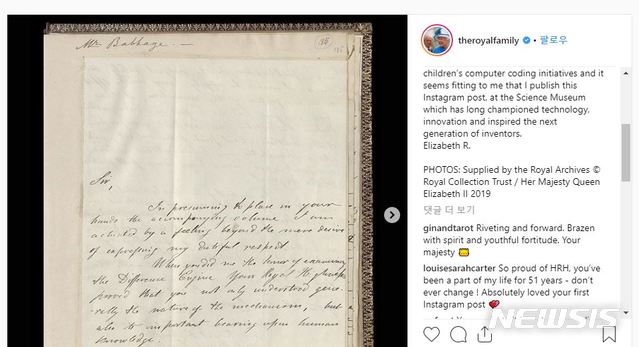 Mr Babbage. —
Sir,
In presuming to place in your
hands the accompanying volume I am
actuated by a feeling beyond the mere desire
of expressing my dutiful respect
When you did me the honor of examining
the Difference Engine Your Royal Highness
proved that you not only understood gene-
rally the nature of the mechanism, but
also its important bearing upon human
knowledge.
theroyalfamily • 팔로우
children's computer coding initiatives and it
seems fitting to me that I publish this
Instagram post, at the Science Museum
which has long championed technology,
innovation and inspired the next
generation of inventors.
Elizabeth R.
PHOTOS: Supplied by the Royal Archives ©
Royal Collection Trust / Her Majesty Queen
Elizabeth II 2019
댓글 더 보기
ginandtarot Riveting and forward. Brazen
with spirit and youthful fortitude. Your
majesty
louisesarahcarter So proud of HRH, you've
been a part of my life for 51 years - don't
ever change ! Absolutely loved your first
Instagram post
NEWSIS